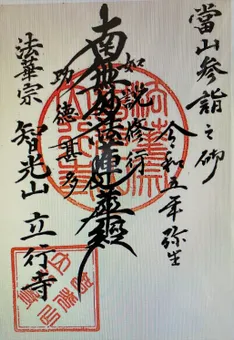 當山参詣之砌
令和五年弥生
如説修行
南無妙法蓮華経
功徳甚多
法華宗
智光山 立行寺